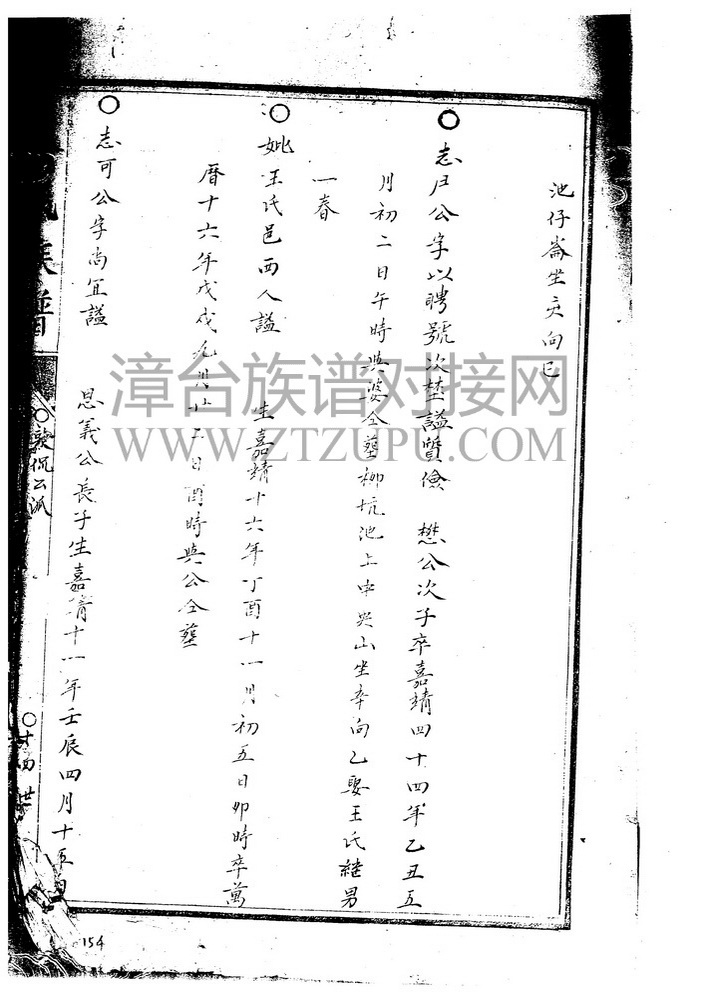 池仔崙坐亥向巳
志尹公字以聘號次埜謚質儉 懋公次子卒嘉靖四十四年乙丑五
月初二日午時與婆仝塟柳坑池上中央山坐辛向乙娶王氏継男
一春
妣王氏邑西人謚 生嘉靖十六年丁酉十一月初五日卯時卒萬
曆十六年戊戌九月廿二日酉時與公仝塟
志可公字尚宜謚 思義公長子生嘉靖十一年壬辰四月十五日
族譜
敦侃公派
世
154
漳台族谱对接网
WWW.ZTZUPU.COM